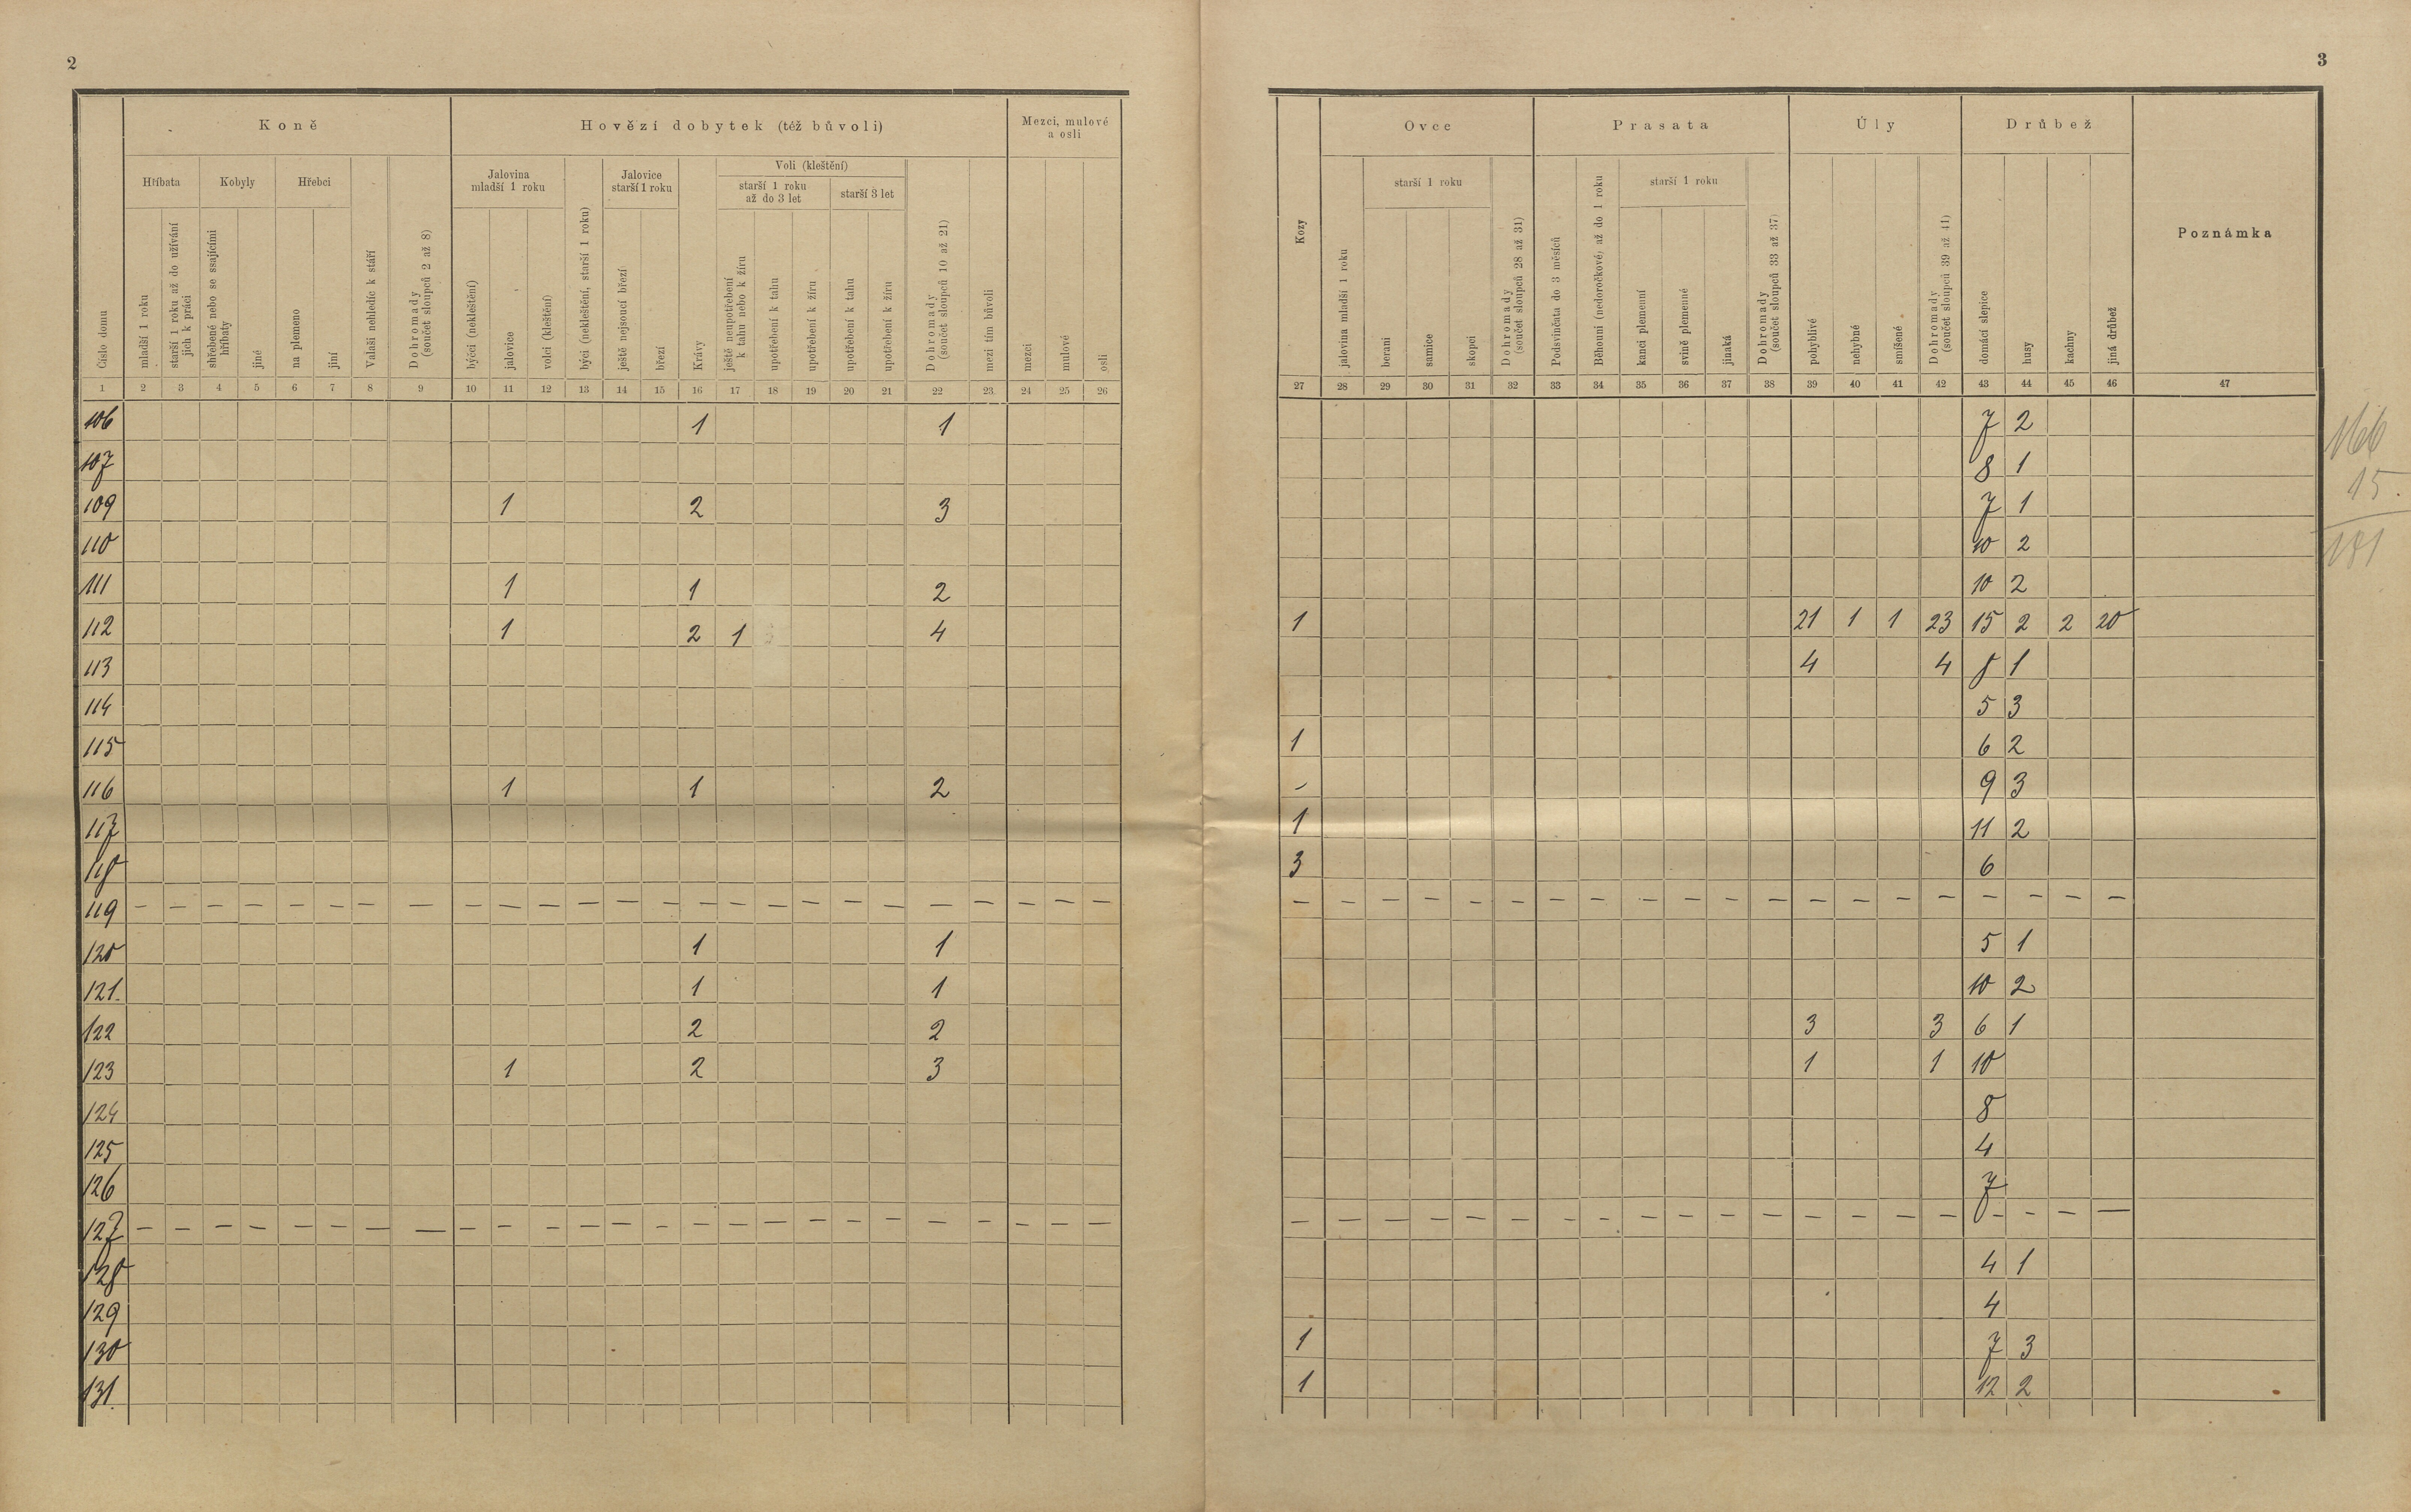 2
Koně
Hovězí dobytek (též bůvoli)
Mezci, mulové
a osli
Číslo domu
Hříbata
Kobyly
Hřebci
mladší 1 roku
starší 1 roku až do užívání
jich k práci
shřebené nebo se ssajícími
hříbaty
jiné
na plemeno
jiní
Valaši nehledíc k stáří
Dohromady
(součet sloupců 2 až 8)
Jalovina
mladší 1 roku
býčci (nekleštění)
jalovice
volci (kleštění)
býci (nekleštění, starší 1 roku)
Jalovice
starší 1 roku
ještě nejsoucí březí
březí
Krávy
Voli (kleštění)
starší 1 roku
až do 3 let
starší 3 let
ještě neupotřebení
k tahu nebo k žíru
upotřebení k tahu
upotřebení k žíru
upotřebení k tahu
upotřebení k žíru
Dohromady
(součet sloupců 10 až 21)
mezi tím bůvoli
mezci
mulové
osli
1 2 3 4 5 6 7 8 9 10 11 12 13 14 15 16 17 18 19 20 21 22 23 24 25 26
106 1 1
107
109 1 2 3
110
111 1 1 2
112 1 2 1 4
113
114
115
116 1 1 2
117
118
119 — — — — — — — — — — — — — — — — — — — — — — — — —
120 1 1
121. 1 1
122 2 2
123 1 2 3
124
125
126
127 — — — — — — — — — — — — — — — — — — — — — — — — —
128
129
130
131.
3
Ovce
Prasata
Úly
Drůbež
Poznámka
Kozy
jalovina mladší 1 roku
starší 1 roku
berani
samice
skopci
Dohromady
(součet sloupců 28 až 31)
Podsvinčata do 3 měsíců
Běhouni (nedoročkové) až do 1 roku
starší 1 roku
kanci plemenní
svině plemenné
jinaká
Dohromady
(součet sloupců 33 až 37)
pohyblivé
nehybné
smíšené
Dohromady
(součet sloupců 39 až 41)
domácí slepice
husy
kachny
jiná drůbež
27 28 29 30 31 32 33 34 35 36 37 38 39 40 41 42 43 44 45 46 47
7 2
8 1
7 1
10 2
10 2
1 21 1 1 23 15 2 2 20
4 4 8 1
5 3
1 6 2
- 9 3
1 11 2
3 6
— — — — — — — — — — — — — — — — — — — —
5 1
10 2
3 3 6 1
1 1 10
8
4
7
— — — — — — — — — — — — — — — — — — — —
4 1
4
1 7 3
1 12 2
166
15.
181